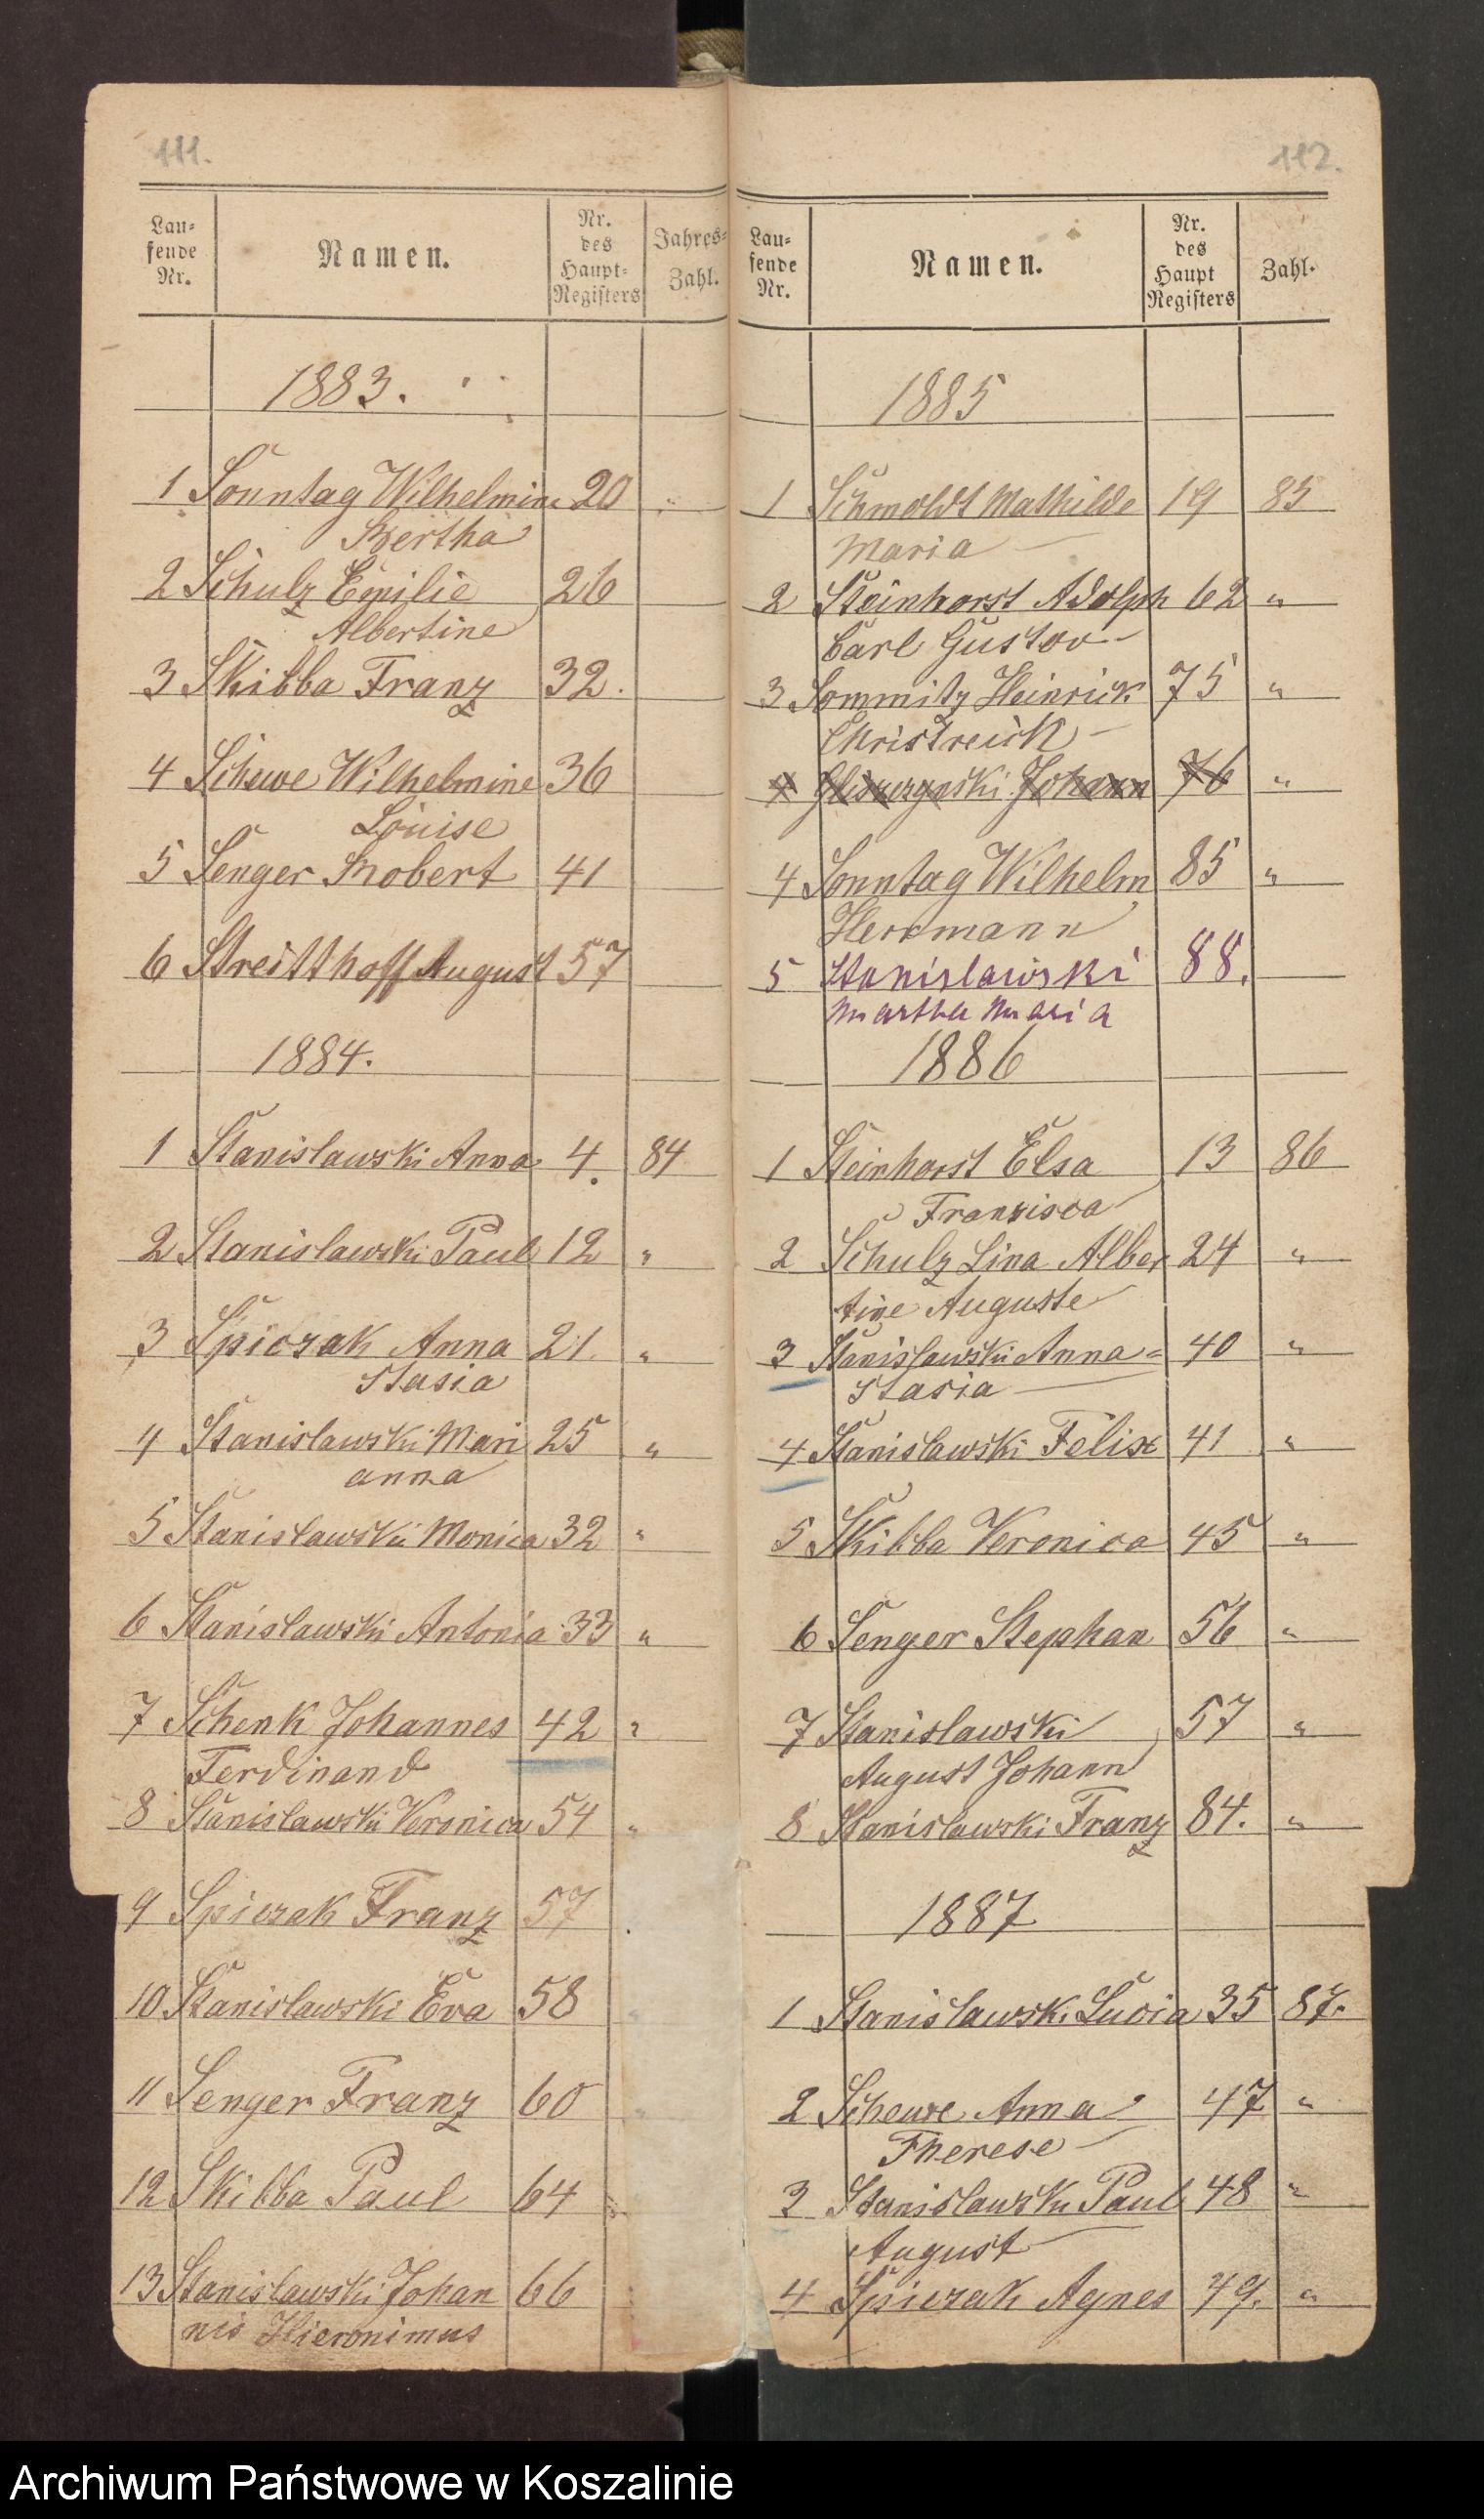 111.
Lau-
fende
Nr.
Namen.
Nr.
des
Haupt-
Registers
Jahres-
Zahl.
1883.
1 Sonntag Wilhelmine 20
Bertha
2 Schulz Emilie 26
Albertine
3 Skibba Franz 32.
4 Schewe Wilhelmine 36
Louise
5 Senger Robert 41
6 Streitthoff August 57
1884.
1 Stanislawski Anna 4. 84
2 Stanislawski Paul 12 "
3 Spiczak Anna 21. "
Stasia
4 Stanislawski Mari 25 "
anna
5 Stanislawski Monica 32 "
6 Stanislawski Antonia 33 "
7 Schenk Johannes 42 "
Ferdinand
8 Stanislawski Veronica 54 "
9 Spiczak Franz 57
10 Stanislawski Eva 58
11 Senger Franz 60
12 Skibba Paul 64
13 Stanislawski Johan 66
nis Hieronimus
112.
Lau-
fende
Nr.
Namen.
Nr.
des
Haupt
Registers
Zahl.
1885
1 Schmoldt Mathilde 19 85
Maria
2 Steinhorst Adolph 62 "
Carl Gustav
3 Sommitz Heinrich 75 "
4 Johann 76 "
4 Sonntag Wilhelm 85 "
Herrmann
5 Stanislawski 88.
Martha Maria
1886
1 Steinhorst Elsa 13 86
Franzisca
2 Schulz Lina Alber 24 "
tine Auguste
3 Stanislawski Anna= 40 "
stasia
4 Stanislawski Felix 41 "
5 Skibba Veronica 45 "
6 Senger Stephan 56 "
7 Stanislawski 57 "
August Johann
8 Stanislawski Franz 84. "
1887
1 Stanislawski Lucia 35 87.
2 Schewe Anna 47 "
Therese
3 Stanislawski Paul 48 "
August
4 Spiczak Agnes 49. "
Archiwum Państwowe w Koszalinie